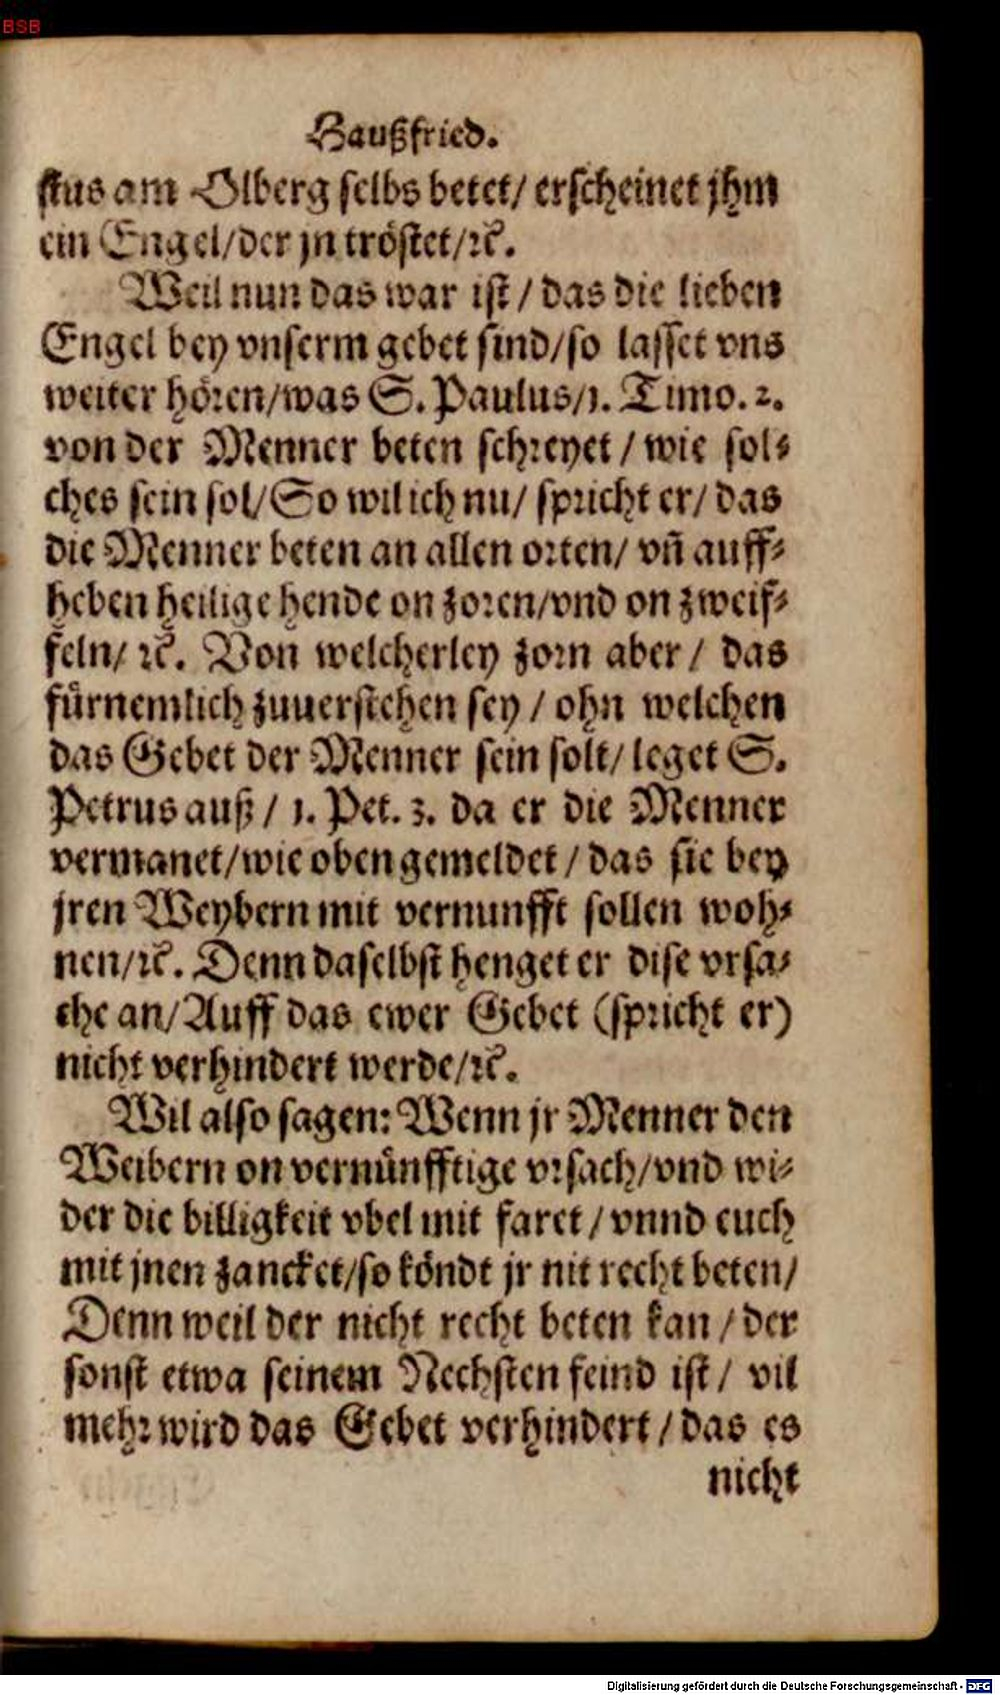 BSB
Haußfried.
stus am Olberg selbs betet/ erscheinet jhm
ein Engel/der jn tröstet/ꝛc̃.
Weil nun das war ist / das die lieben
Engel bey vnserm gebet sind/so lasset vns
weiter hören/was S. Paulus/1. Timo. 2.
von der Menner beten schreyet / wie sol⸗
ches sein sol/So wil ich nu/ spricht er/ das
die Menner beten an allen orten/ vñ auff⸗
heben heilige hende on zoren/vnd on zweif⸗
feln/ ꝛc̃. Von welcherley zorn aber / das
fürnemlich zuuerstehen sey / ohn welchen
das Gebet der Menner sein solt/ leget S.
Petrus auß / 1. Pet. 3. da er die Menner
vermanet/wie oben gemeldet / das sie bey
jren Weybern mit vernunfft sollen woh⸗
nen/ꝛc̃. Denn daselbst henget er dise vrsa⸗
che an/Auff das ewer Gebet (spricht er)
nicht verhindert werde/ꝛc̃.
Wil also sagen: Wenn jr Menner den
Weibern on vernünfftige vrsach/vnd wi⸗
der die billigkeit vbel mit faret / vnnd euch
mit jnen zancket/so köndt jr nit recht beten/
Denn weil der nicht recht beten kan / der
sonst etwa seinem Nechsten feind ist / vil
mehr wird das Gebet verhindert / das es
nicht
Digitalisierung gefördert durch die Deutsche Forschungsgemeinschaft - DFG